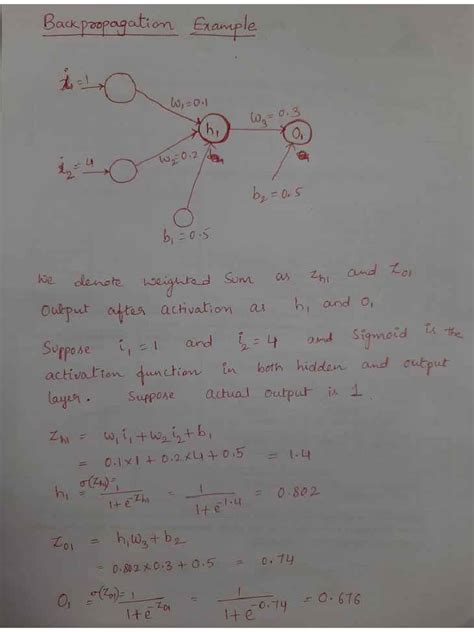 Backpropagation Example
i₁=1
w₁=0.1
h₁
w₃=0.3
o₁
i₂=4
w₂=0.2
b₂=0.5
b₁=0.5
We denote weighted sum as Zh₁ and Zo₁
Output after activation as h₁ and o₁
Suppose i₁=1 and i₂=4 and Sigmoid is the
activation function in both hidden and output
layer. Suppose actual output is 1.
Zh₁ = w₁i₁+w₂i₂+b₁
= 0.1×1+0.2×4+0.5 = 1.4
h₁ = σ(Zh₁) = 1/(1+e^-Zh₁) = 1/(1+e^-1.4) = 0.802
Zo₁ = h₁w₃+b₂
= 0.802×0.3+0.5 = 0.74
O₁ = σ(Zo₁) = 1/(1+e^-Zo₁) = 1/(1+e^-0.74) = 0.676